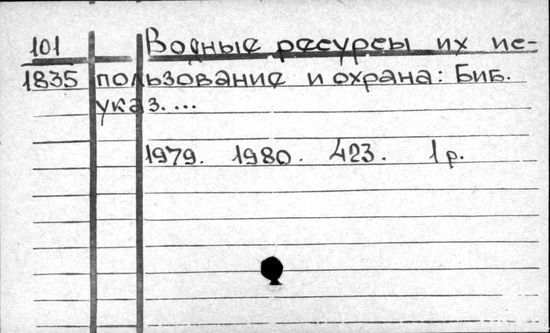 101 Водные ресурсы их ис-
1835 пользование и охрана: Биб.
указ. ...
1979. 1980. 423. 1 р.